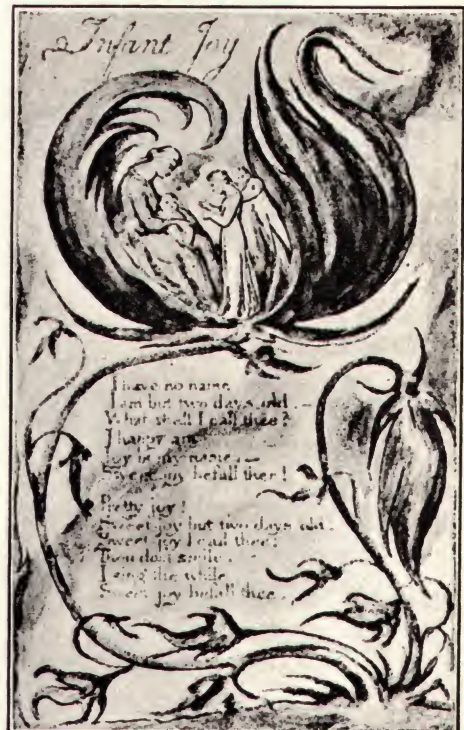 Infant Joy
I have no name
I am but two days old. —
What shall I call thee?
I happy am
Joy is my name. —
Sweet joy befall thee!
Pretty joy!
Sweet joy but two days old.
Sweet joy I call thee;
Thou dost smile.
I sing the while
Sweet joy befall thee.